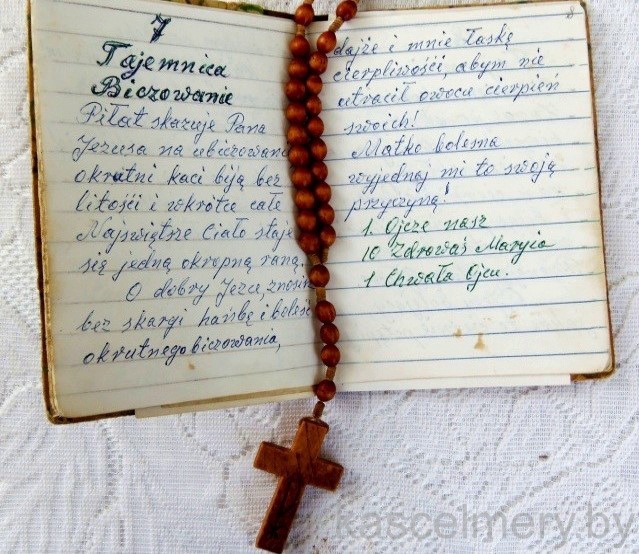 7
Tajemnica
Biczowanie
Piłat skazuje Pana
Jezusa na ubiczowanie
okrutni kaci biją bez
litości i wkrótce całe
Najświętsze Ciało staje
się jedną okropną raną.
O dobry Jezu, znosisz
bez skargi hańbę i boleść
okrutnego biczowania,
8
dajże i mnie łaskę
cierpliwości, abym nie
utracił owocu cierpień
swoich!
Matko bolesna
wyjednaj mi to swoją
przyczyną!
1 Ojcze nasz
10 Zdrowaś Maryjo
1 Chwała Ojcu.
kascelmery.by